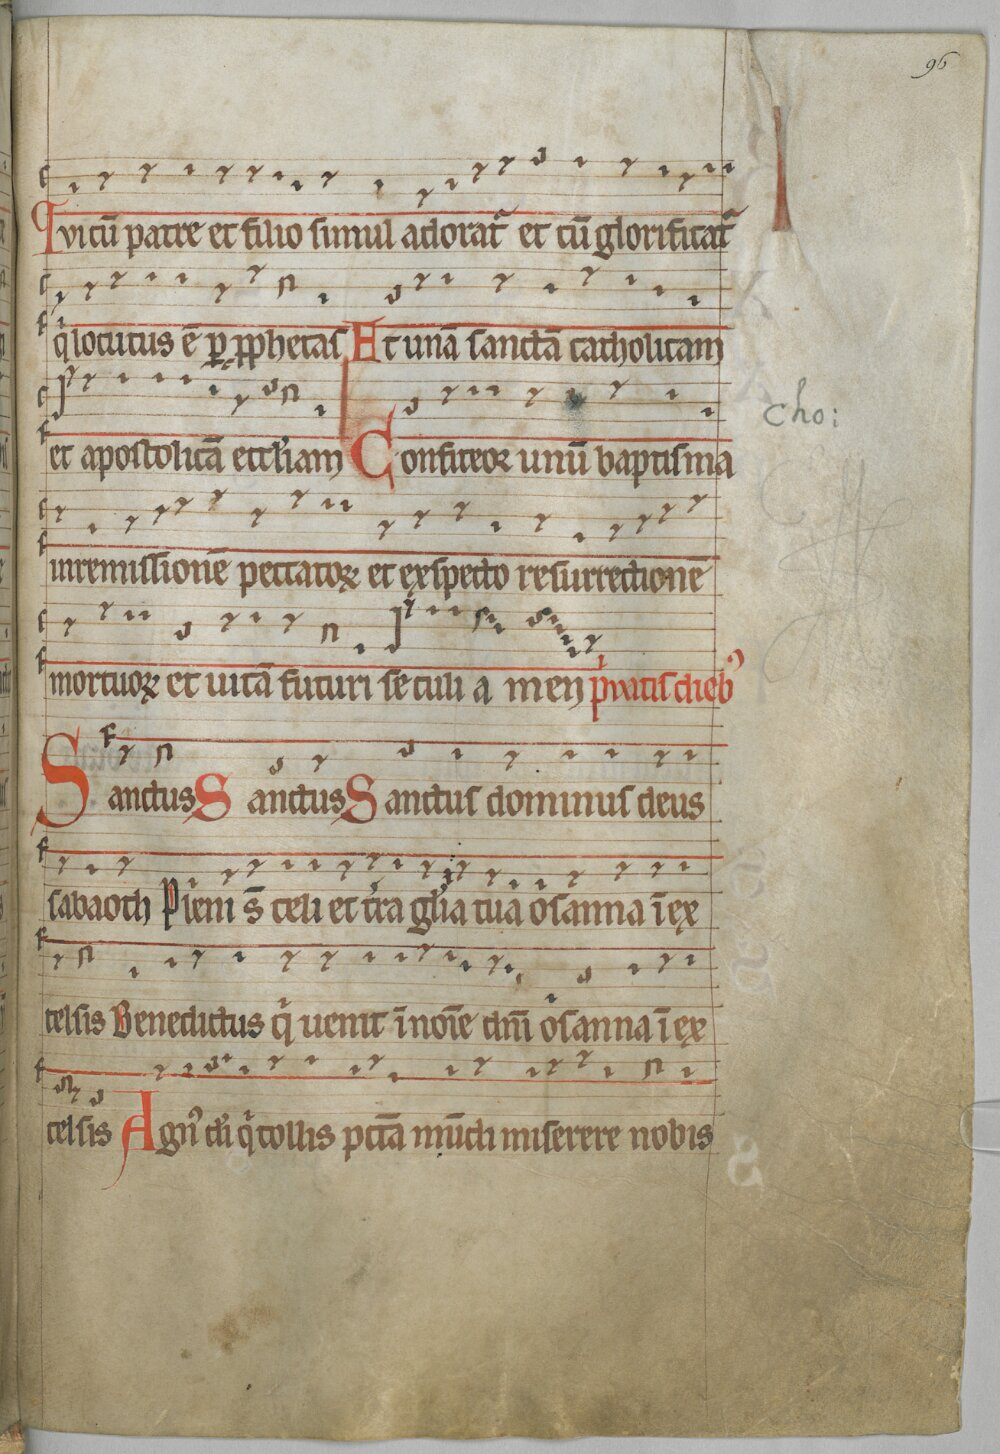 96
Qui cū patre et filio simul adorat̃ et cū glorificat̃
q̇ locutus ē ꝑ ꝓphetas Et unā sanctā catholicam
et apostolicā eccl'iam Confiteoꝛ unū baptisma
cho:
in remissionē peccatoꝝ et exspecto resurrectionē
mortuoꝝ et uitā futuri seculi a men p̓uatis dieb⁹
Sanctus Sanctus Sanctus dominus deus
sabaoth Pleni s̄ celi et t̓ra gl'ia tua osanna ī ex
celsis Benedictus q̇ uenit ī noīe dn̄i osanna ī ex
celsis Agn⁹ d'i q̇ tollis pctā mūdi miserere nobis